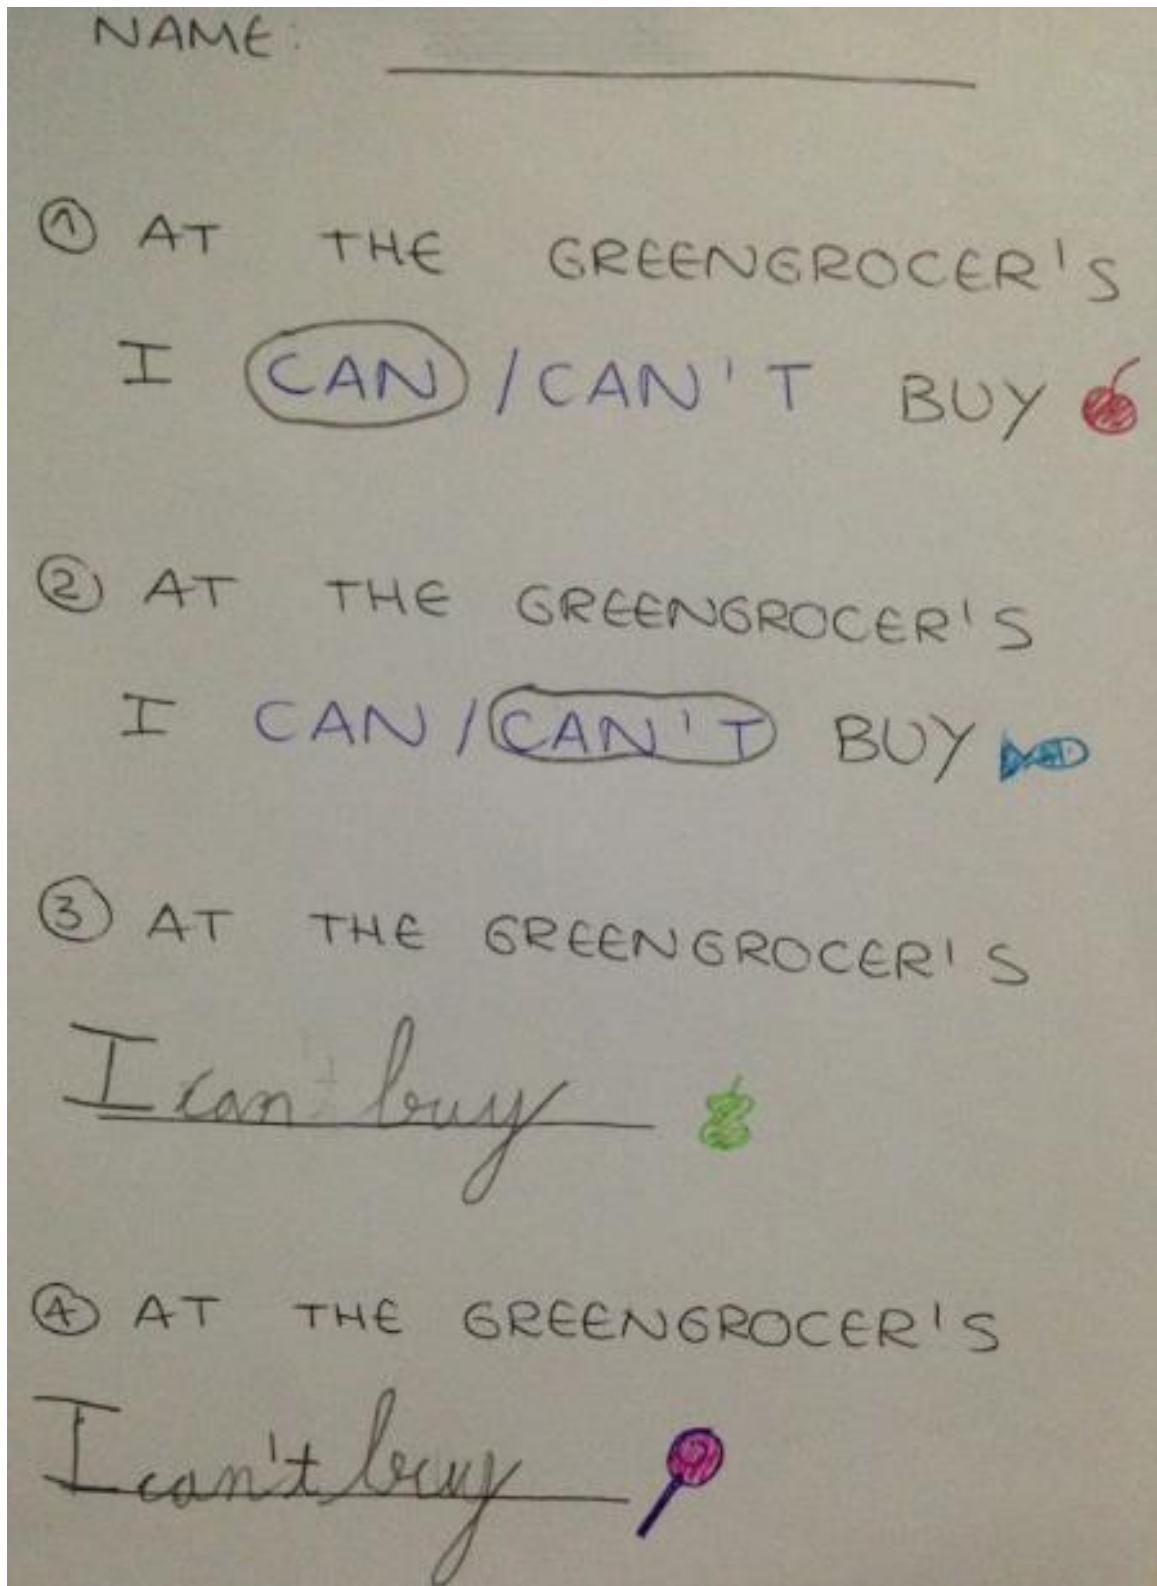 NAME:
① AT THE GREENGROCER'S
I CAN / CAN'T BUY
② AT THE GREENGROCER'S
I CAN / CAN'T BUY
③ AT THE GREENGROCER'S
I can buy
④ AT THE GREENGROCER'S
I can't buy